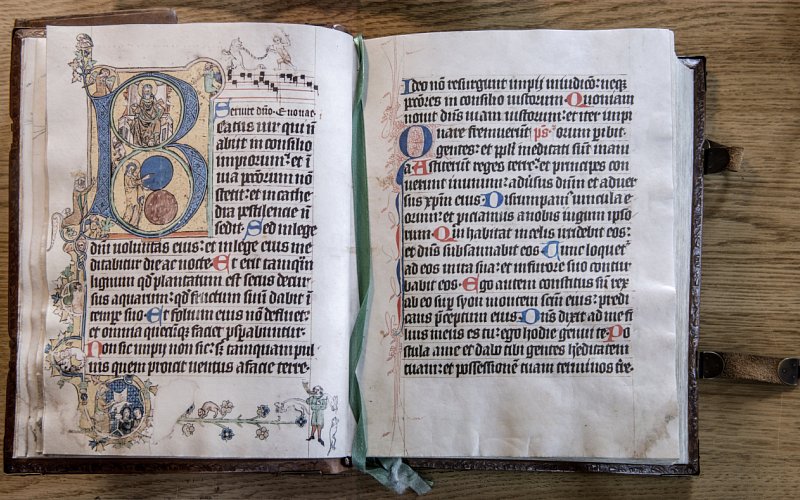 Servite dño. Evovae
Beatus vir qui nõ
abiit in consilio
impiorum: et ĩ
via pctorum nõ
stetit: et in cathe
dra pestilencie nõ
sedit. Sed in lege
dñi voluntas eius: et in lege eius me
ditabitur die ac nocte. Et erit tamqm̃
lignum qd plantatum est secus decur
sus aquarum: qd fructum suũ dabit ĩ
tempe suo. Et folium eius nõ defluet:
et omnia quecũq; faciet psperabuntur.
Non sic impii non sic: sz tamquam pul
uis quem proicit ventus a facie terre.
Ideo nõ resurgunt impij in iudicõ: neq;
pctores in consilio iustorum. Quoniam
novit dñs viam iustorum: et iter impi
orum pibit. ps.
Quare fremuerũt
gentes: et ppli meditati sunt inani
a. Astiterũt reges terre: et principes con
venerunt in unum: adũsus dñm et adver
sus xpm eius. Disrumpam9 vincula e
orum: et piciamus a nobis iugum ipso
rum. Qui habitat in celis irridebit eos:
et dñs subsannabit eos. Tunc loquet
ad eos in ira sua: et in furore suo contur
babit eos. Ego autem constitutus sũ rex
ab eo sup syon montem scm eius: predi
cans pceptum eius. Dñus dixit ad me fi
lius meus es tu: ego hodie genui te. Po
stula a me et dabo tibi gentes hereditatem
tuam: et possessionẽ tuam terminos tre.